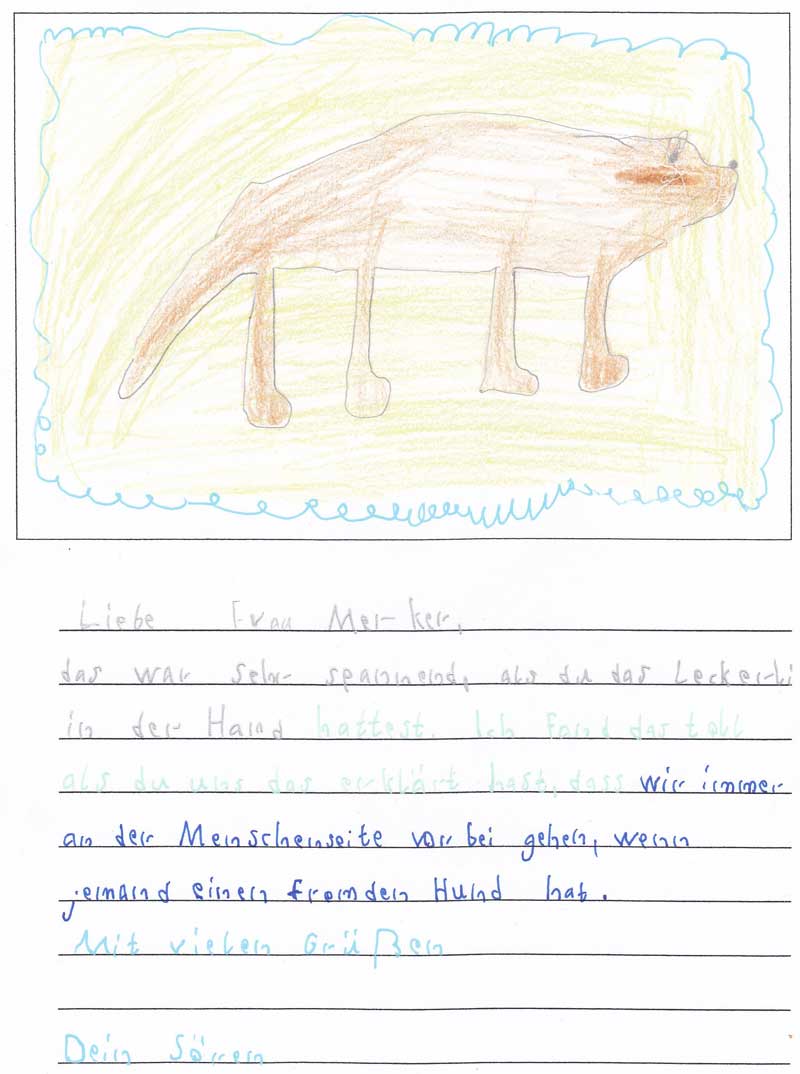 Liebe Frau Merker,
das war sehr spannend, als du das Leckerli
in der Hand hattest. Ich fand das toll
als du uns das erklärt hast, dass wir immer
an der Menschenseite vor bei gehen, wenn
jemand einen fremden Hund hat.
Mit vielen Grüßen
Dein Sören